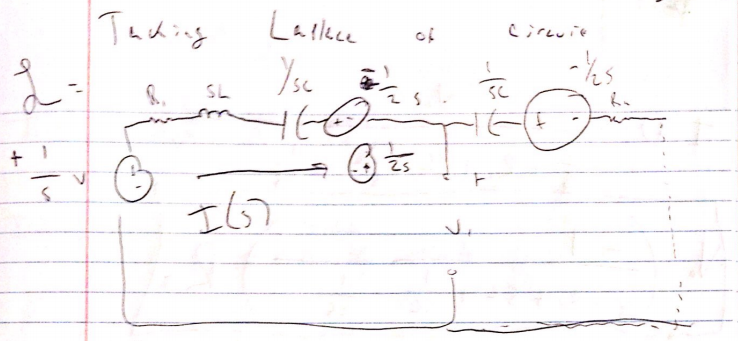 Taking Laplace of circuit
ℒ =
R₁ sL 1/sC -1/2s 1/sC -1/2s R₂
+ 1/s v + - + -
- + 1/2s
+
I(s)
V₁